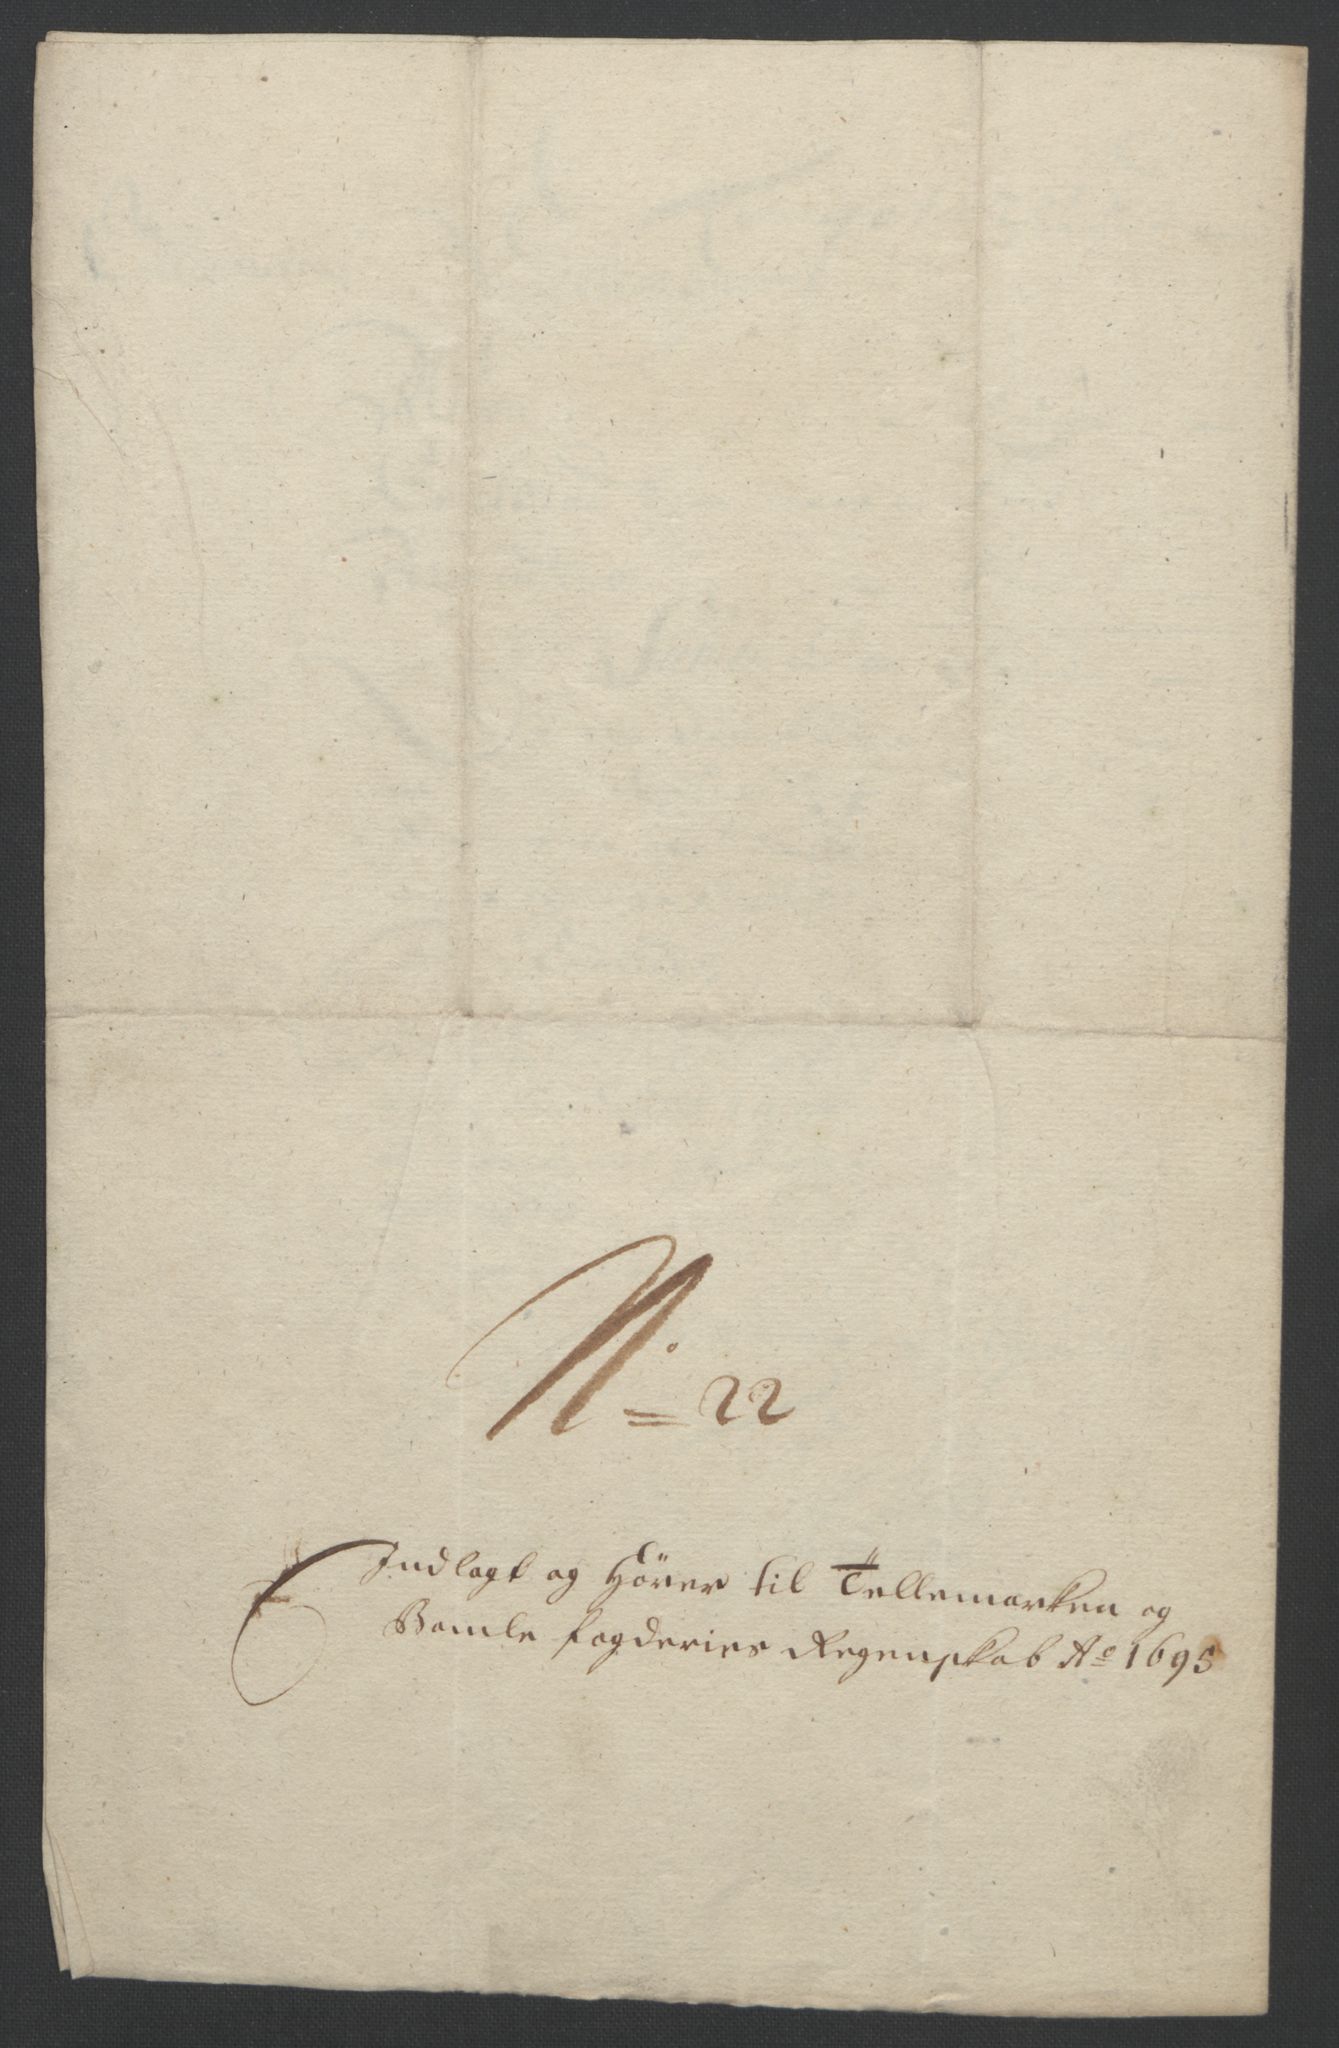 No= 22
Indlagt og Hörer til Tellemarken og
Bamle fogderies Regenskab Ao 1695